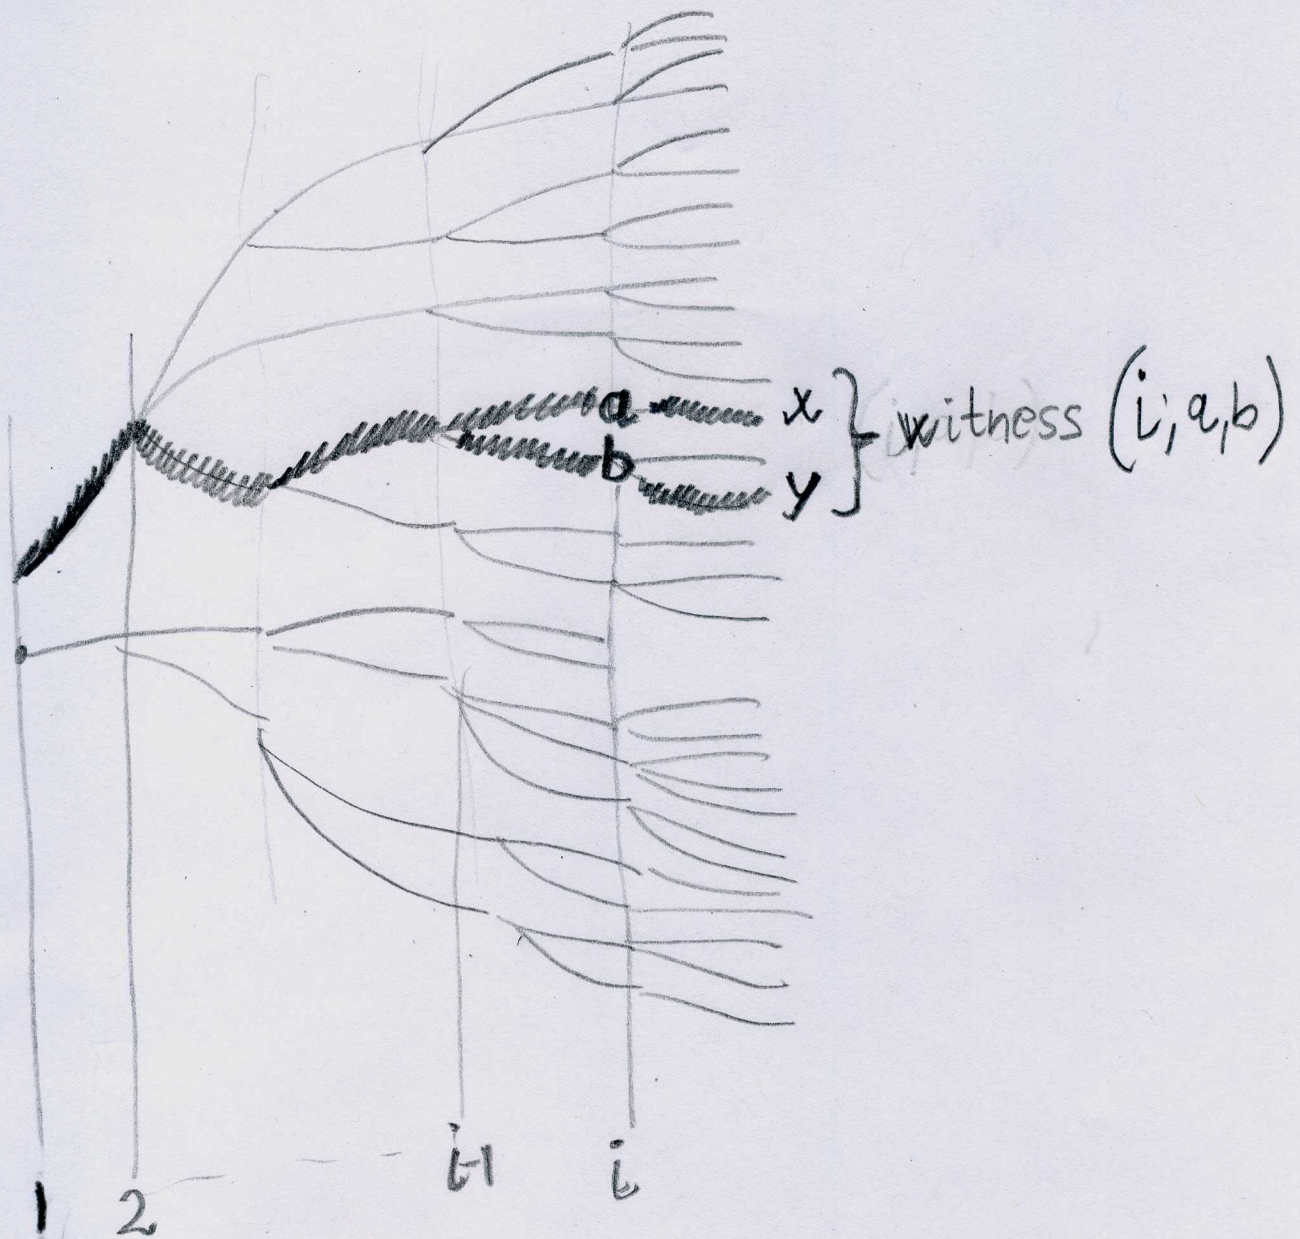 a x
b y
} witness (i, a, b)
1 2 i-1 i